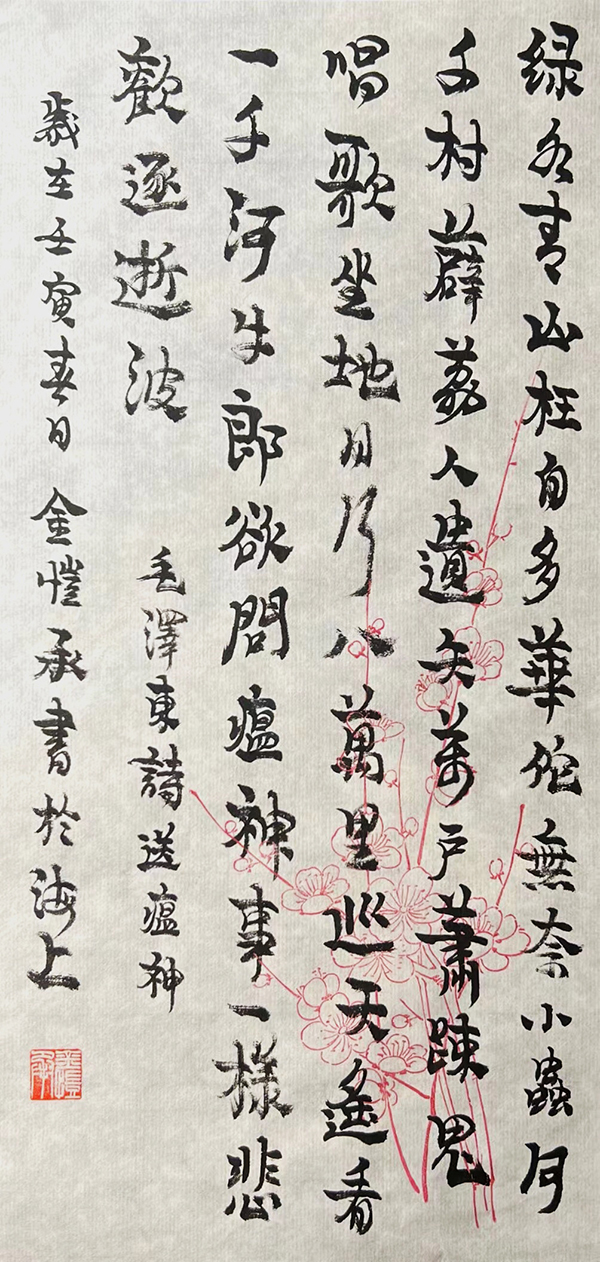 绿水青山枉自多華佗無奈小蟲何
千村薜荔人遺矢萬戶蕭踈鬼
唱歌坐地日行八萬里巡天遙看
一千河牛郎欲問瘟神事一樣悲
歡逐逝波
毛澤東詩送瘟神
歲在壬寅春日金愷承書於海上